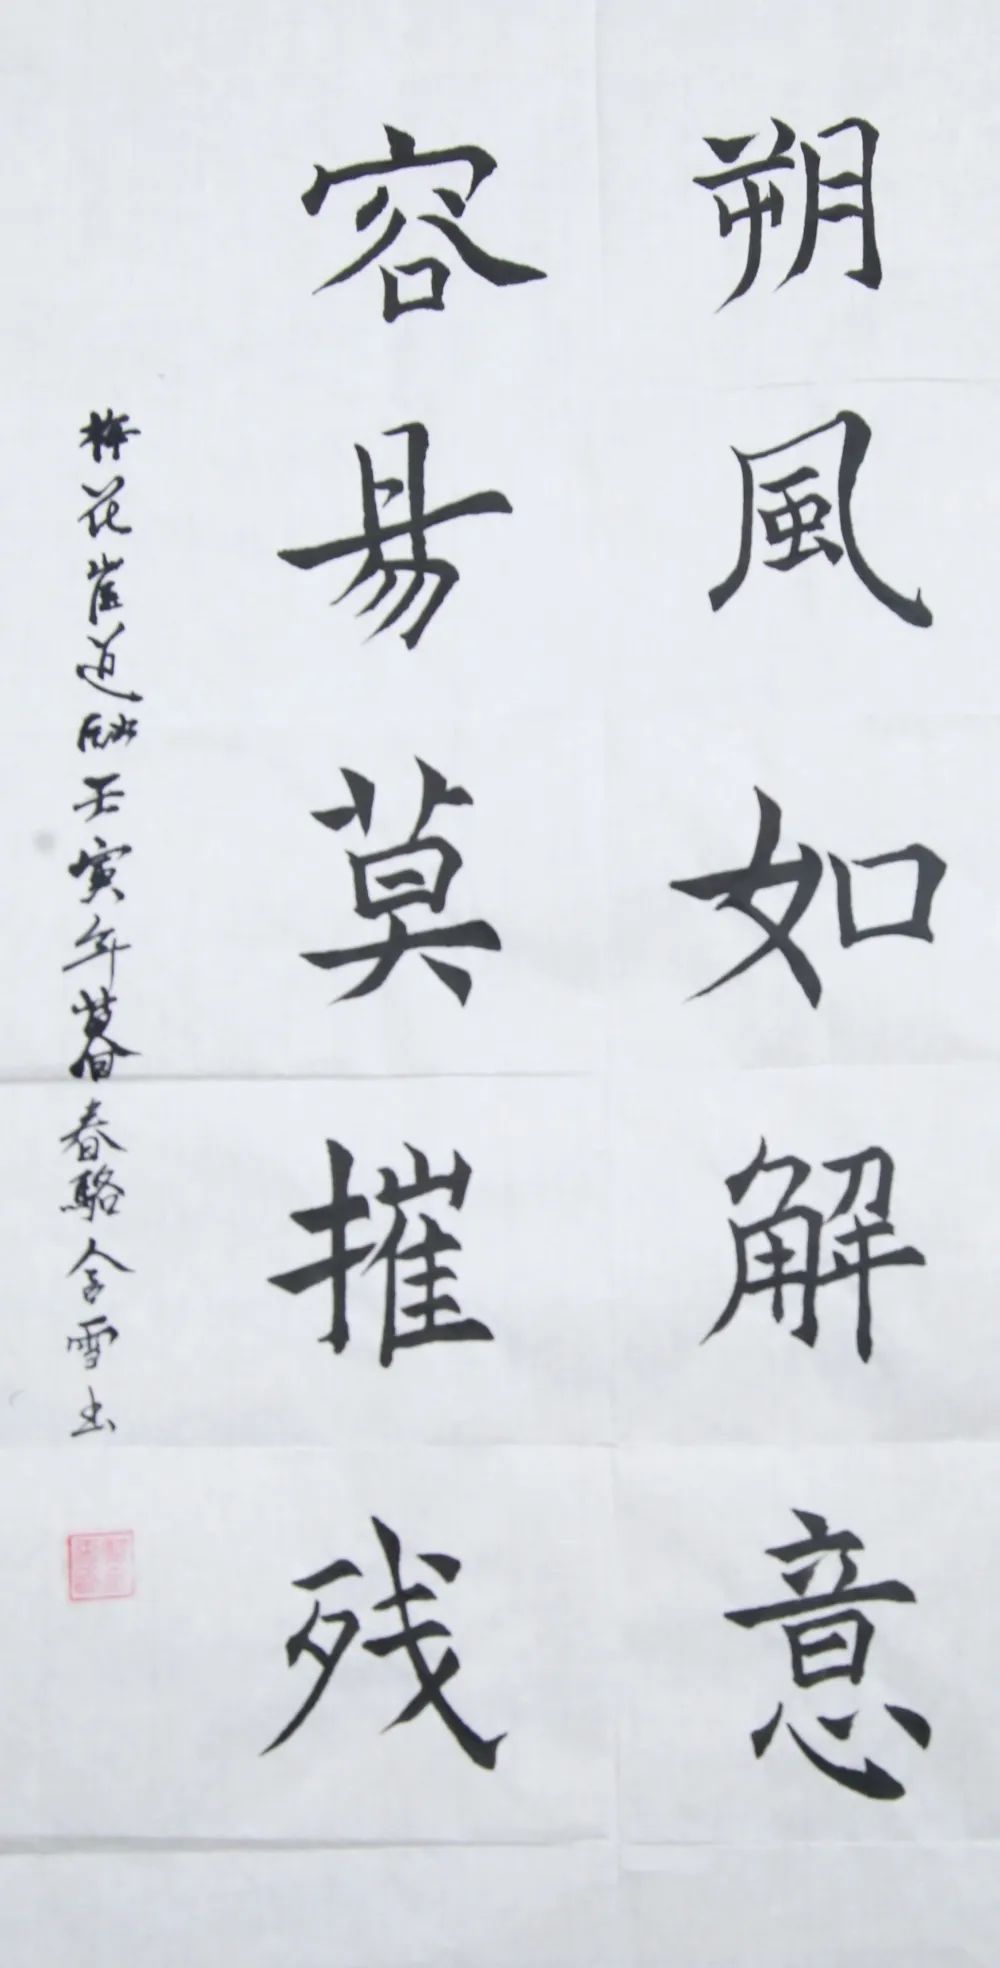 朔風如解意
容易莫摧残
梅花崔道融壬寅年暮春駱含雪书